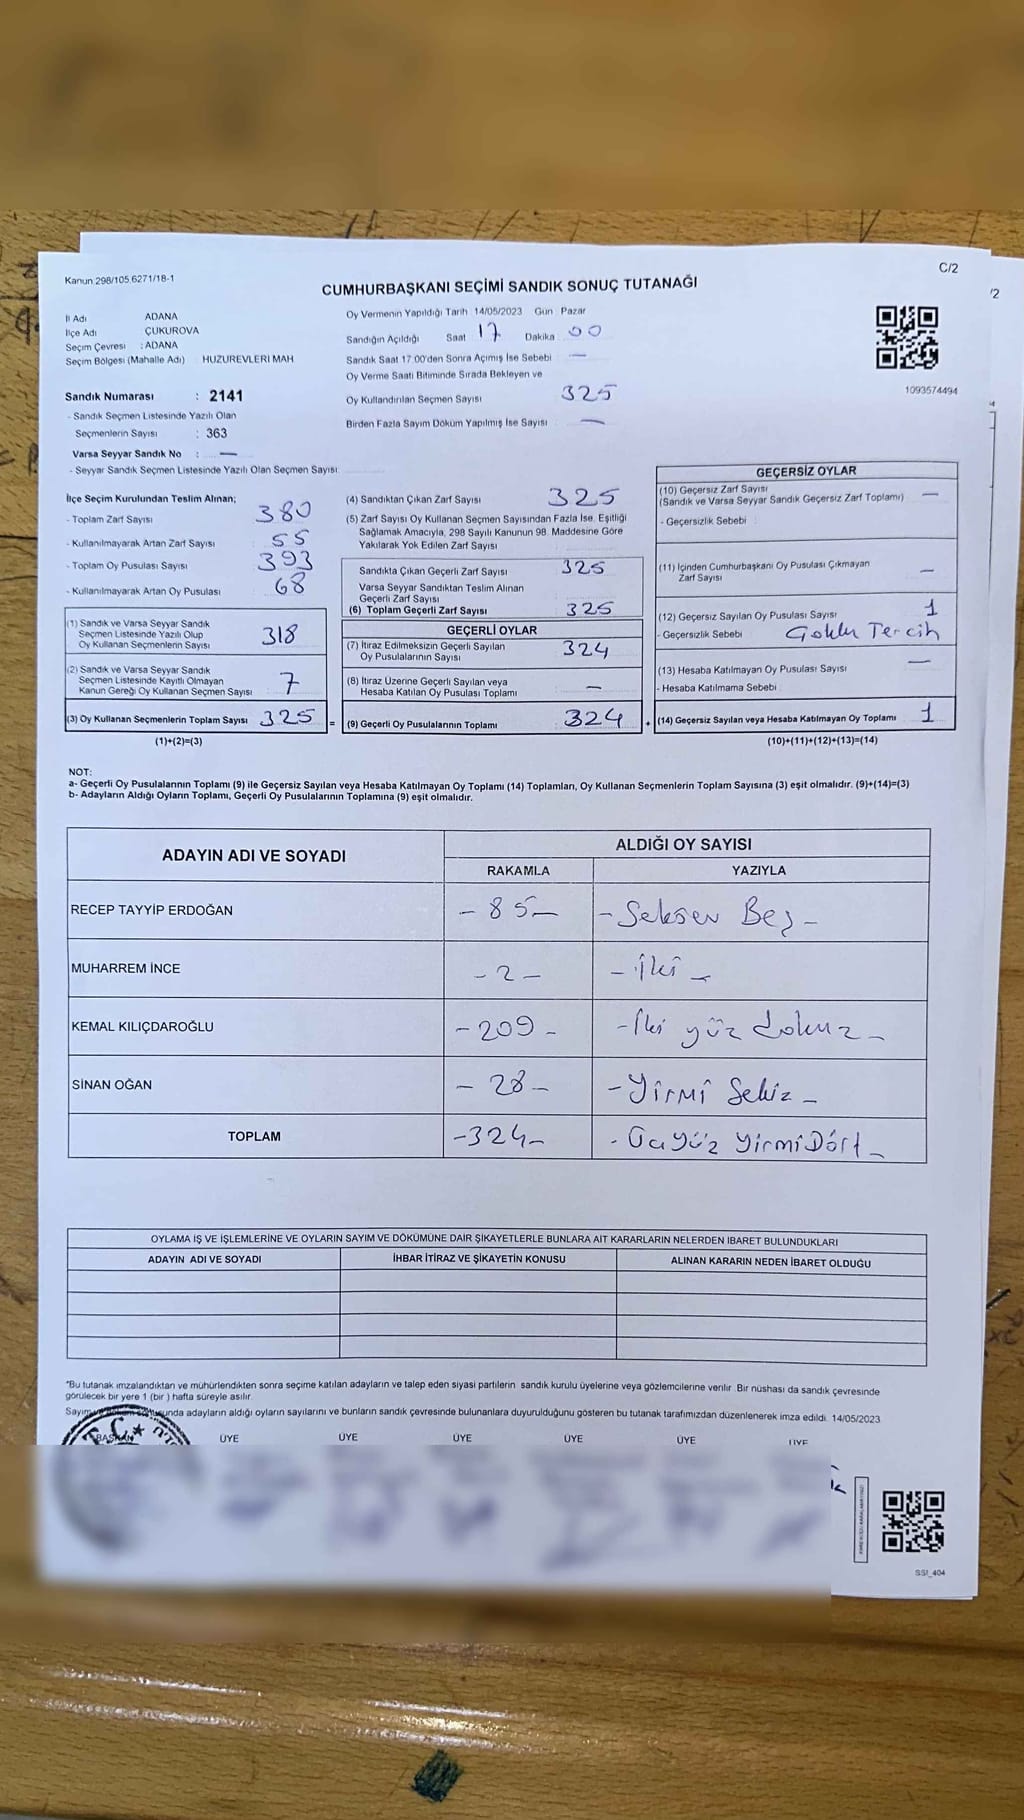 C/2
/2
Kanun 298/105.6271/18-1
CUMHURBAŞKANI SEÇİMİ SANDIK SONUÇ TUTANAĞI
İl Adı ADANA
İlçe Adı ÇUKUROVA
Seçim Çevresi : ADANA
Seçim Bölgesi (Mahalle Adı) HUZUREVLERİ MAH
Sandık Numarası : 2141
- Sandık Seçmen Listesinde Yazılı Olan
Seçmenlerin Sayısı : 363
Varsa Seyyar Sandık No : —
- Seyyar Sandık Seçmen Listesinde Yazılı Olan Seçmen Sayısı:
Oy Vermenin Yapıldığı Tarih 14/05/2023 Gün Pazar
Sandığın Açıldığı Saat 17 Dakika 00
Sandık Saat 17:00'den Sonra Açımış İse Sebebi —
Oy Verme Saati Bitiminde Sırada Bekleyen ve
Oy Kullandırılan Seçmen Sayısı 325
Birden Fazla Sayım Döküm Yapılmış İse Sayısı —
1093574494
İlçe Seçim Kurulundan Teslim Alınan;
- Toplam Zarf Sayısı 380
- Kullanılmayarak Artan Zarf Sayısı 55
- Toplam Oy Pusulası Sayısı 393
- Kullanılmayarak Artan Oy Pusulası 68
(1) Sandık ve Varsa Seyyar Sandık
Seçmen Listesinde Yazılı Olup
Oy Kullanan Seçmenlerin Sayısı 318
(2) Sandık ve Varsa Seyyar Sandık
Seçmen Listesinde Kayıtlı Olmayan
Kanun Gereği Oy Kullanan Seçmen Sayısı 7
(3) Oy Kullanan Seçmenlerin Toplam Sayısı 325
(1)+(2)=(3)
=
(4) Sandıktan Çıkan Zarf Sayısı 325
(5) Zarf Sayısı Oy Kullanan Seçmen Sayısından Fazla İse, Eşitliği
Sağlamak Amacıyla, 298 Sayılı Kanunun 98. Maddesine Göre
Yakılarak Yok Edilen Zarf Sayısı
Sandıkta Çıkan Geçerli Zarf Sayısı 325
Varsa Seyyar Sandıktan Teslim Alınan
Geçerli Zarf Sayısı
(6) Toplam Geçerli Zarf Sayısı 325
GEÇERLİ OYLAR
(7) İtiraz Edilmeksizin Geçerli Sayılan
Oy Pusulalarının Sayısı 324
(8) İtiraz Üzerine Geçerli Sayılan veya
Hesaba Katılan Oy Pusulası Toplamı —
(9) Geçerli Oy Pusulalarının Toplamı 324
+
GEÇERSİZ OYLAR
(10) Geçersiz Zarf Sayısı
(Sandık ve Varsa Seyyar Sandık Geçersiz Zarf Toplamı) —
- Geçersizlik Sebebi
(11) İçinden Cumhurbaşkanı Oy Pusulası Çıkmayan
Zarf Sayısı —
(12) Geçersiz Sayılan Oy Pusulası Sayısı 1
- Geçersizlik Sebebi Çoklu Tercih
(13) Hesaba Katılmayan Oy Pusulası Sayısı —
- Hesaba Katılmama Sebebi
(14) Geçersiz Sayılan veya Hesaba Katılmayan Oy Toplamı 1
(10)+(11)+(12)+(13)=(14)
NOT:
a- Geçerli Oy Pusulalarının Toplamı (9) ile Geçersiz Sayılan veya Hesaba Katılmayan Oy Toplamı (14) Toplamları, Oy Kullanan Seçmenlerin Toplam Sayısına (3) eşit olmalıdır. (9)+(14)=(3)
b- Adayların Aldığı Oyların Toplamı, Geçerli Oy Pusulalarının Toplamına (9) eşit olmalıdır.
ADAYIN ADI VE SOYADI ALDIĞI OY SAYISI
RAKAMLA YAZIYLA
RECEP TAYYİP ERDOĞAN - 85 - - Seksen Beş -
MUHARREM İNCE - 2 - - İki -
KEMAL KILIÇDAROĞLU - 209 - - İki yüz dokuz -
SİNAN OĞAN - 28 - - Yirmi Sekiz -
TOPLAM - 324 - - Üçyüz YirmiDört -
OYLAMA İŞ VE İŞLEMLERİNE VE OYLARIN SAYIM VE DÖKÜMÜNE DAİR ŞİKAYETLERLE BUNLARA AİT KARARLARIN NELERDEN İBARET BULUNDUKLARI
ADAYIN ADI VE SOYADI İHBAR İTİRAZ VE ŞİKAYETİN KONUSU ALINAN KARARIN NEDEN İBARET OLDUĞU
*Bu tutanak imzalandıktan ve mühürlendikten sonra seçime katılan adayların ve talep eden siyasi partilerin sandık kurulu üyelerine veya gözlemcilerine verilir. Bir nüshası da sandık çevresinde
görülecek bir yere 1 (bir) hafta süreyle asılır.
adayların aldığı oyların sayılarını ve bunların sandık çevresinde bulunanlara duyurulduğunu gösteren bu tutanak tarafımızdan düzenlenerek imza edildi. 14/05/2023
BAŞKAN ÜYE ÜYE ÜYE ÜYE ÜYE ÜYE
T.C.
SSI_404